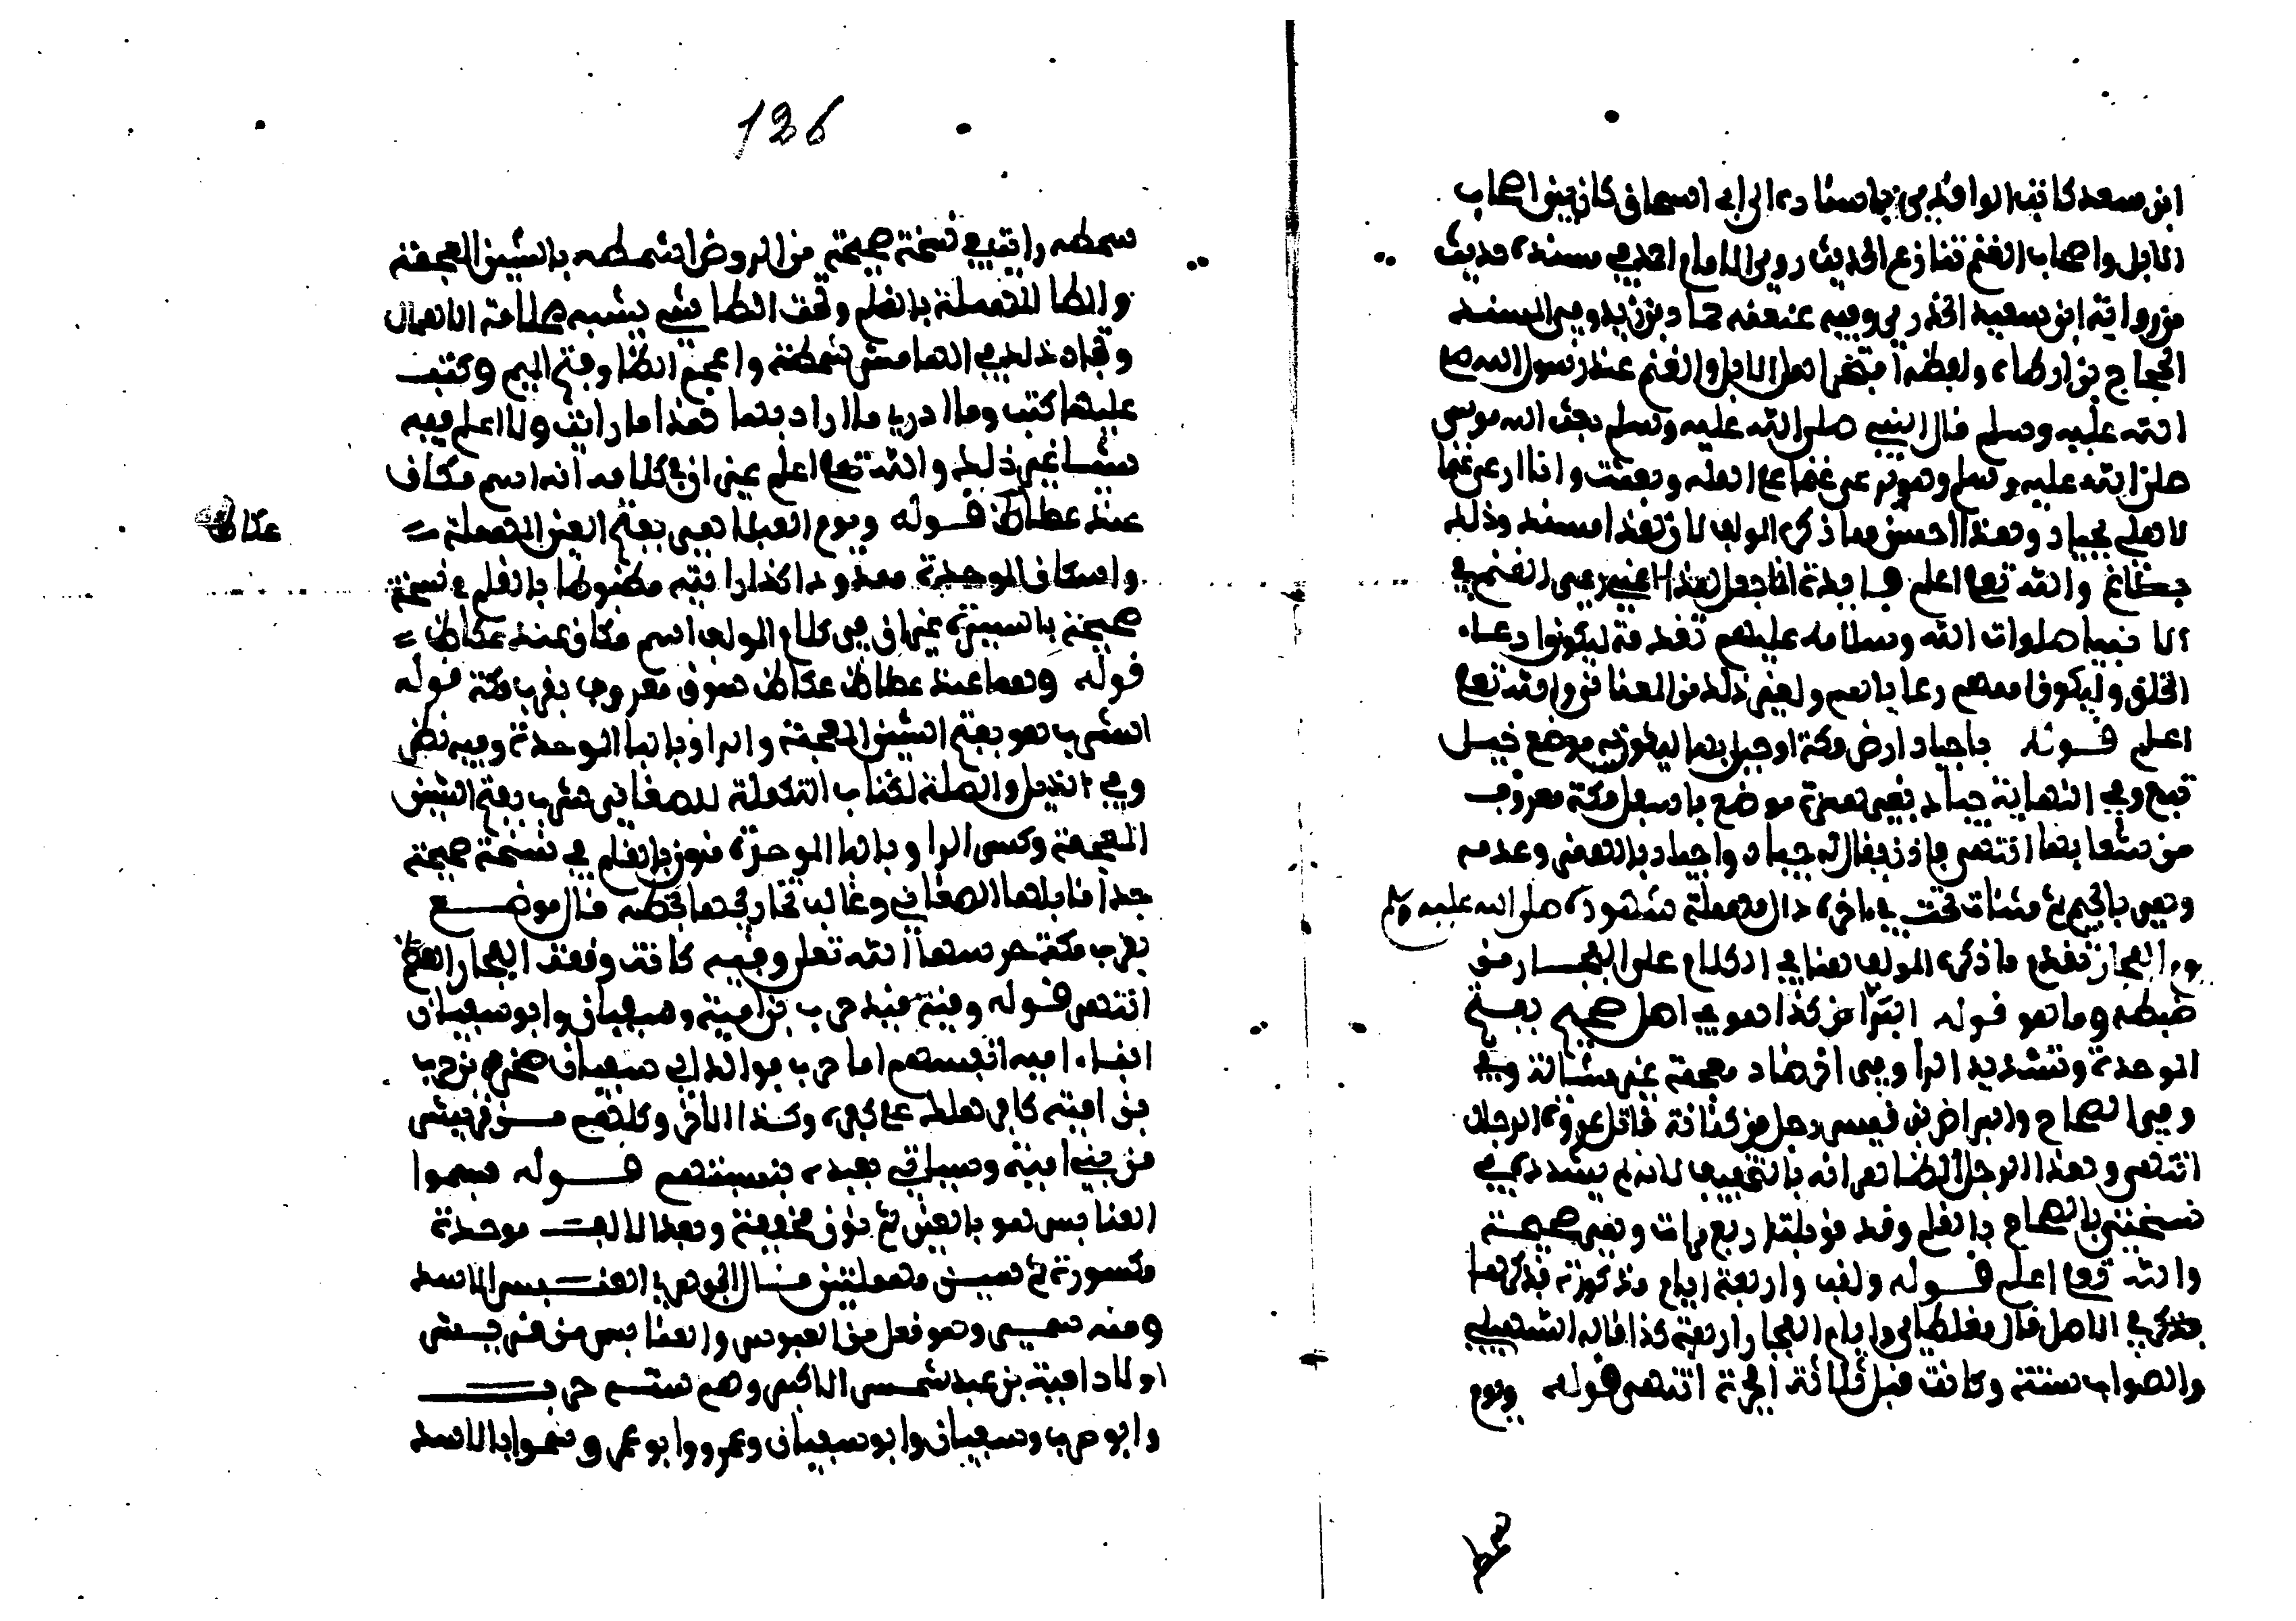 ابن سعد كاتب الواقدي باسناده الى ابى اسحاق كان بين اصحاب
الابل واصحاب الغنم تنازع الحديث روى الامام احمد في مسنده حديث
من رواية ابى سعيد الخدري وفيه عنعنه حماد بن زيد وفي السند
الحجاج بن ارطاه ولفظه افتخر اهل الابل والغنم عند رسول الله صلى
الله عليه وسلم فقال النبي صلى الله عليه وسلم بعث الله موسى
صلى الله عليه وسلم وهو يرعى غنما على اهله وبعثت وانا ارعى غنما
لاهلي بجياد وهذا احسن مما ذكره المولف لان هذا مسند وذلك
والله تعالى اعلم فايدة انما جعل هذا اعني رعي الغنم في
الانبيا صلوات الله وسلامه عليهم تقدمة ليكونوا رعاء
الخلق وليكون اممهم رعايا لهم ولغير ذلك من المعاني والله تعالى
اعلم قوله باجياد ارض مكة او جبل بها لكونه موضع خيل
تبع وفي النهاية جياد بغير همزة موضع باسفل مكة معروف
من شعابها انتهى فاذن يقال له جياد واجياد بالهمز وعدمه
وهي بالجيم ثم مثناة تحت في اخره دال مهملة شهوده صلى الله عليه وسلم
يوم الفجار تقدم ما ذكره المولف هنا في الكلام على الفجار من
ضبطه وما هو قوله البراض كذا هو في اصل صحيح بفتح
الموحدة وتشديد الرا وفي اخره ضاد معجمة غير مشالة وفي
وفي الصحاح والبراض بن قيس رجل من كنانة قاتل عروة الرحال
انتهى وهذا الرجل الظاهر انه بالتخفيف لانه لم يشدده في
نسختي بالصحاح بالقلم وقد قوبلت اربع مرات وهي صحيحة
والله تعالى اعلم قوله ولفب واربعة ايام مذكورة فذكرها
فذكر في الاصل قال مغلطاي وايام الفجار اربعة كذا قاله السهيلي
والصواب ستة وكانت قبل ثلاثة الحرة انتهى قوله ويوم
شمطه
126
سمطه رايته في نسخة صحيحة من الروض شمطه بالشين المعجمة
والطا المهملة بالقلم وتحت الطا شي يشبه علامة الاهمال
وتجاه ذلك في الهامش شمظة واعجم الظا وفتح الميم وكتب
عليها كتب وما ادري ما اراد بها هذا ما رايت ولا اعلم فيه
شيا غير ذلك والله تعالى اعلم غير ان في كلامه انه اسم مكان
عند عكاظ قوله ويوم العبلا هي بفتح العين المهملة =
واسكان الموحدة ممدودا كذا رايته مضبوطا بالقلم في نسخة
صحيحة بالسيرة غير ان في كلام المولف اسم مكان عند عكاظ =
قوله وهما عند عكاظ عكاظ سوق معروف بقرب مكة قوله
الشرب هو بفتح الشين المعجمة والرا وبالبا الموحدة وفيه نظر
وفي الذيل والصلة لكتاب التكملة للصغاني شرب بفتح الشين
المعجمة وكسر الرا وبالبا الموحدة منون بالقلم في نسخة صحيحة
جدا قابلها الصغاني وغالب تخاريجها بخطه قال موضع
بقرب مكة حرسها الله تعالى وفيه كانت وقعة الفجار العظمى
انتهى قوله وفيه قيد حرب بن امية وسفيان وابو سفيان
ابناء امية انفسهم اما حرب فوالد ابي سفيان صخر بن حرب
بن امية كافر هلك على كفره وكذا الاخر وكلهم من قريش
من بني امية وسياتي بعيده بنسبتهم قوله فسموا
العنابس هو بالعين ثم نون مخففة وبعد الالف موحدة
مكسورة ثم سين مهملتين قال الجوهري العنبس الاسد
ومنه سمي وهو فعل من العبوس والعنابس من قريش
اولاد امية بن عبد شمس الاكبر وهم ستة حرب
وابو حرب وسفيان وابو سفيان وعمرو وابو عمرو سموا بالاسد
عكاظ